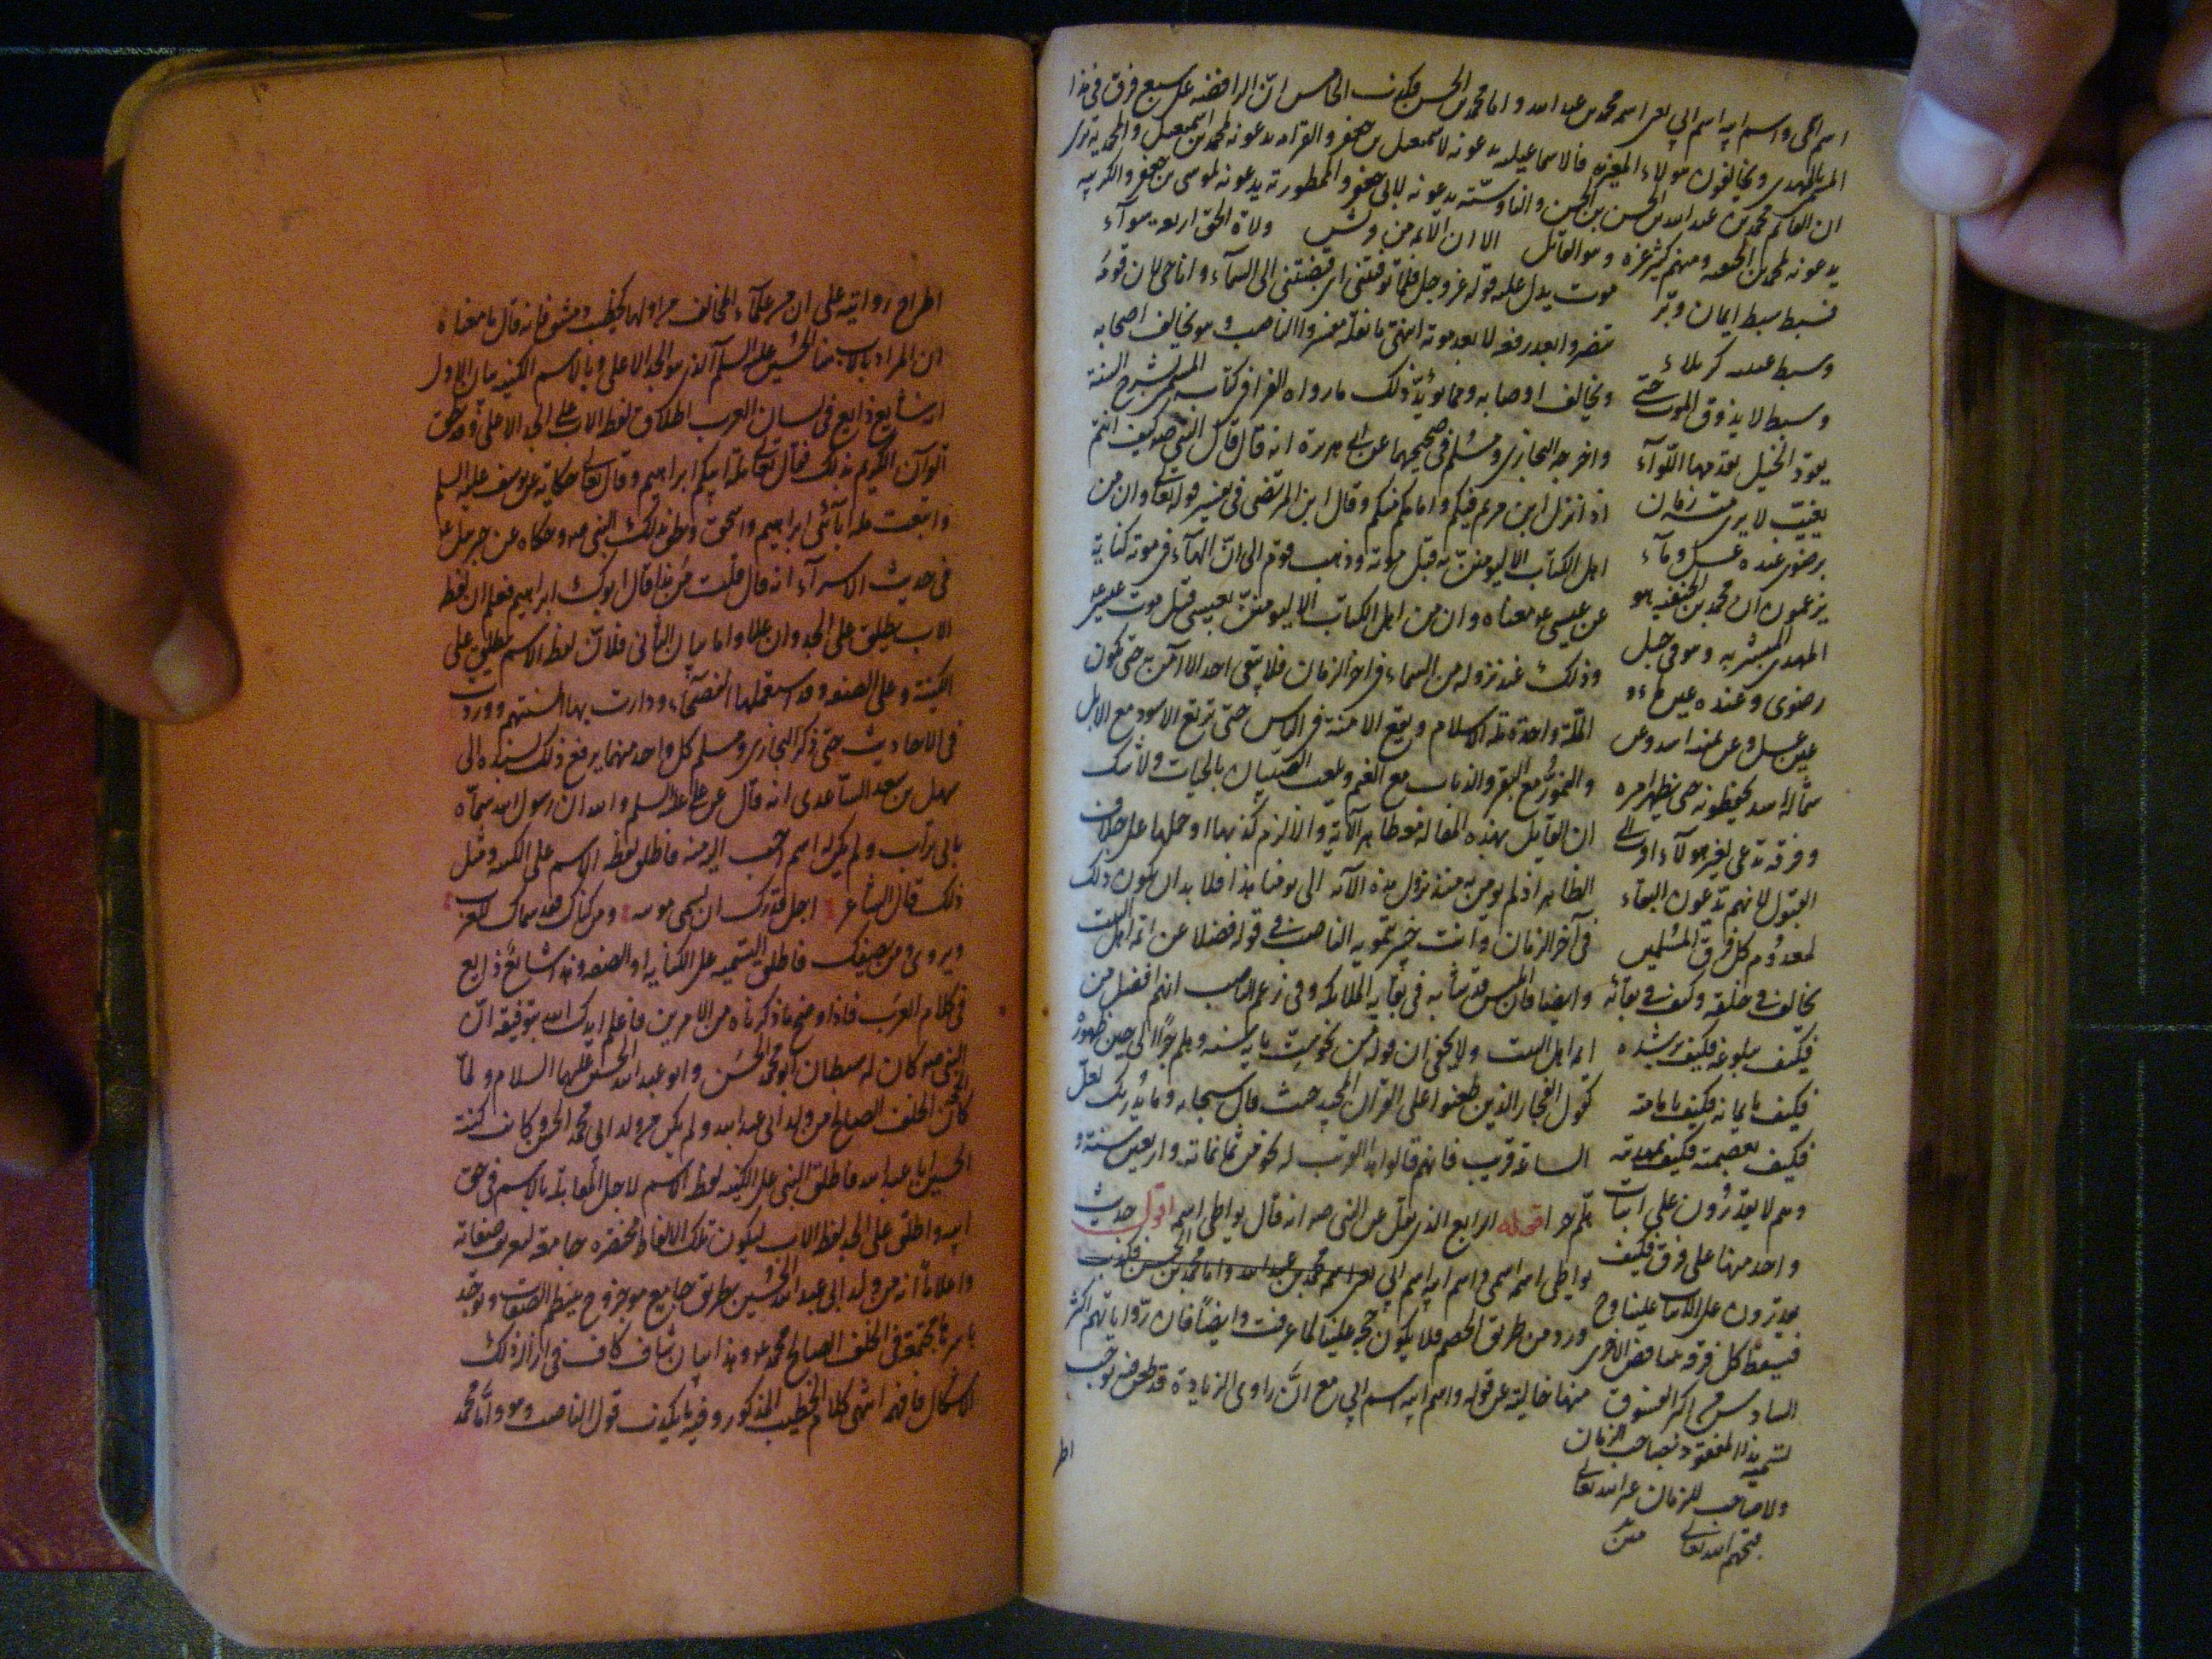 اسمي واسم ابيه اسم ابي يعني اسمه محمد بن عبد الله واما محمد بن الحسن فكذب الخامس ان الرافضة على سبع فرق في هذا
المسمى بالمهدي ويخالفون هؤلاء المعيزه فالاسماعيليه يدعونه لاسمعيل بن جعفر والقرامه يدعونه لمحمد بن اسمعيل والمحمديه تزعم
ان القائم محمد بن عبد الله بن الحسن بن الحسن والناوسيّه يدعونه لابي جعفر والممطوريه يدعونه لموسى بن جعفر والكربيه
يدعونه لمحمد بن الحنفيه ومنهم كثير عزه وهو القائل الا ان الائمه من قريش ولاة الحق اربعة سوآء
فسبط سبط ايمان وبرّ
وسبط غيبه كربلاء
وسبط لا يذوق الموت حتى
يقود الخيل يقدمها اللوآء
يغيّب لا يرى زمان
برضوى عنده عسل وماء
يزعمون ان محمد بن الحنفيه هو
المهدي المبشر به وهو في جبل
رضوى وعنده عين ماء و
عين عسل وعن يمينه اسد وعن
شماله اسد يحفظونه حتى يظهر امره
وفرقة تدعي لغير هولآء اولى
القبول لانهم يدّعون البقاء
لمعدوم كل فرق المسلمين
يخالف في خلقه وكيف في بقائه
فكيف ببلوغه فكيف برشده
فكيف بايمانه فكيف بامامته
فكيف بعصمته فكيف بمهديته
وهم لا يقدرون على اثبات
واحد منها على فرق فكيف
يقدرون على الاثبات علينا وح
فيسقط كل فرقة بمناقض الاخرى
السادس من اكبر الفسوق
تسمية هذا المفقود بصاحب الزمان
ولا صاحب للزمان غير الله تعالى
قبحهم الله تعالى متن
موت يدل عليه قوله عز وجل فلما توفيتني اي قبضتني الى السمآء وانا حي لان قومه
تنصروا بعد رفعه لا بعد موته انتهى ما نقله مفسروا الناصب وهو يخالف اصحابه
ويخالف اوصابه ومما يؤيد ذلك ما رواه الفرا في كتابه المسمى بشرح السنة
واخرجه البخاري ومسلم في صحيحيهما عن ابي هريرة انه قال قال النبي ص كيف انتم
اذا نزل ابن مريم فيكم وامامكم منكم وقال ابن المرتضى في تفسير قوله تعالى وان من
اهل الكتاب الا ليؤمنن به قبل موته وذهب قوم الى ان الهآء في موته كناية
عن عيسى ع معناه وان من اهل الكتاب الا ليؤمننّ بعيسى قبل موت عيسى ع
وذلك عند نزوله من السماء في اخر الزمان فلا يبقى احد الا آمن به حتى تكون
الملّة واحدة ملة الاسلام ويقع الامنة في الناس حتى ترتع الاسود مع الابل
والنمور مع البقر والذياب مع الغنم ويلعب الصبيان بالحيات ولا شك
ان القايل بهذه المقاله هو ظاهر الآية والا لزم كذبها او حملها على خلاف
الظاهر اذ لم يؤمن به منذ نزول هذه الآيه الى يومنا هذا فلا بد ان يكون ذلك
في آخر الزمان وانت خبير بتمويه الناصب في قوله فضلا عن ائمة اهل البيت
وايضا فابليس قد شابه في بقايه الملائكه وفي زعم الناصب انهم افضل من
ائمه اهل البيت ولا يخفى ان قوله من نحو ست ماية سنه وهلم جرّا الى حين ظهوره
كقول الفجار الذين طعنوا على القرآن المجيد حيث قال سبحانه وما يدريك لعلّ
الساعة قريب فانهم قالوا هذا القرب له نحو من ثمانمائة واربعين سنة و
هلّم جرا قوله الرابع الذي نقل عن النبي ص انه قال يواطي اسمه اقول حديث
يواطي اسمه اسمي واسم ابيه اسم ابي يعني اسمه محمد بن عبد الله واما محمد بن الحسن فكذب
ورد من طريق الخصم فلا يكون حجة علينا لما عرفت وايضاً فان رواياتهم اكثر
منها خاليه عن قوله واسم ابيه اسم ابي مع انّ راوي الزيادة قد طعن فيه يوجب
اطر
اطراح روايته على ان من علمآء المخالف من اولها كخطيب دمشق فانه قال ما معناه
ان المراد بالاب هنا الحسين عليه السلام الذي هو الجد الاعلى وبالاسم الكنيه بيان الاول
انه شايع ذايع في لسان العرب اطلاق لفظ الاب على الجد الاعلى وقد نطق
القرآن الكريم بذلك فقال تعالى ملة ابيكم ابراهيم وقال تعالى حكاية عن يوسف عليه السلم
واتبعت ملة آبائي ابراهيم واسحق ونطق بذلك النبي ص وحكاه عن جبرئيل ع
في حديث الاسرآء انه قال قلت من هذا قال ابوك ابراهيم فعلم ان لفظ
الاب يطلق على الجد وان علا واما بيان الثاني فلان لفظ الاسم يطلق على
الكنية وعلى الصفة وقد استعملها الفصحآء ودارت بها السنتهم ووردت
في الاحاديث حتى ذكر البخاري ومسلم كل واحد منهما يرفع ذلك بسنده الى
سهل بن سعد الساعدي انه قال عن علي عليه السلم والله ان رسول الله سمّاه
بابي تراب ولم يكن له اسم احب اليه منه فاطلق لفظ الاسم على الكنيه ومثل
ذلك قال الشاعر اجل قدرك ان يسمى مونسه ومن كناك فقد سماك للعرب
ويروى ومن يصفك فاطلق التسميه على الكنايه او الصفه وهذا شايع ذايع
في كلام العرب فاذا وضح ما ذكرناه من الامرين فاعلم ايدك الله بتوفيقه انّ
النبي ص كان له سبطان ابو محمد الحسن وابو عبد الله الحسين عليهما السلام ولمّا
كان الحجة الخلف الصالح من ولد ابي عبد الله ولم يكن من ولد ابي محمد الحسن وكانت كنية
الحسين ابا عبد الله فاطلق النبي على الكنيه لفظ الاسم لاجل المقابلة بالاسم في حق
ابيه واطلق على الجد لفظ الاب ليكون تلك الالفاظ مختصره جامعة لتعريف صفاته
واعلاماً انه من ولد ابي عبد الله الحسين بطريق جامع موجز وح ينتظم الصفات وتوجد
باسرها مجتمعة في الخلف الصالح محمد ع وهذا بيان شاف كاف في ازالة ذلك
الاشكال فافهم انتهى كلام الخطيب المذكور وفيه ما يكذب قول الناصب وهو واما محمد